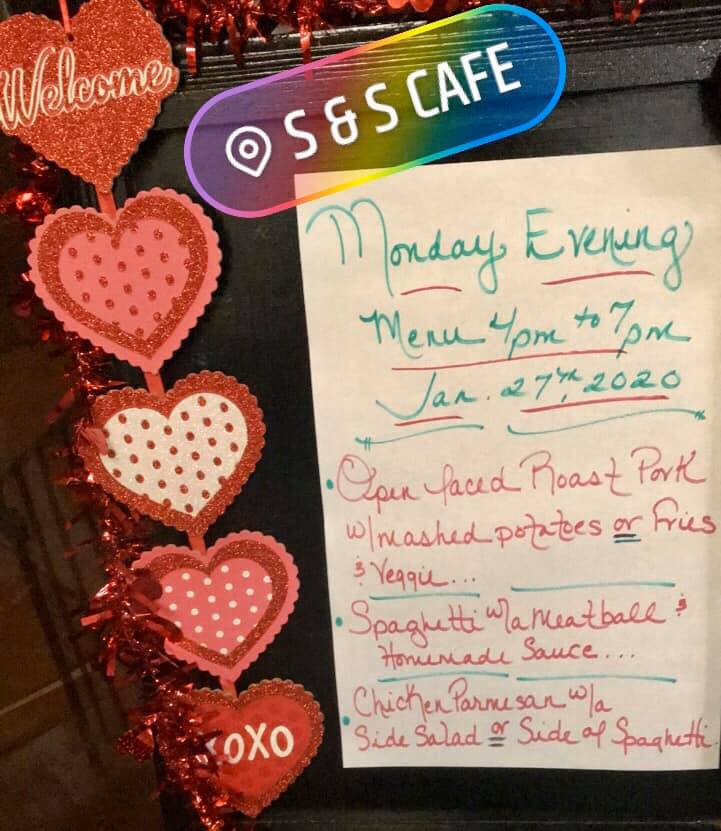 Welcome
S & S CAFE
Monday Evening
Menu 4pm to 7pm
Jan. 27th, 2020
• Open faced Roast Pork
w/mashed potatoes or Fries
& Veggie...
• Spaghetti w/a Meatball &
Homemade Sauce...
• Chicken Parmesan w/a
Side Salad or Side of Spaghetti
XOXO